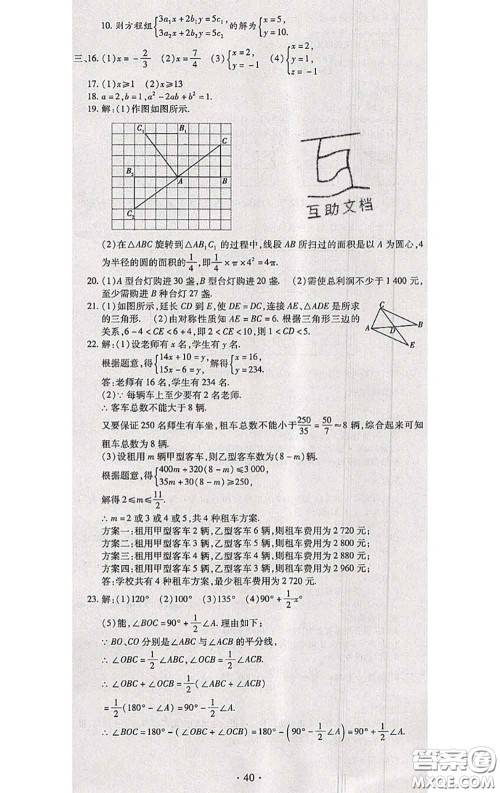 10. 则方程组{3a₁x+2b₁y=5c₁, 3a₂x+2b₂y=5c₂ 的解为{x=5, y=10.
三、16. (1)x=-2/3 (2)x=7/4 (3){x=2, y=-1 (4){x=2, y=1, z=-1
17. (1)x≥1 (2)x≥13
18. a=2,b=1,a²-2ab+b²=1.
19. 解:(1)作图如图所示.
C₁ B₁ C
B₂ A B
C₂
互助文档
(2)在△ABC旋转到△AB₁C₁的过程中,线段AB所扫过的面积是以A为圆心,4
为半径的圆的面积的1/4,即1/4×π×4²=4π.
20. (1)A型台灯购进30盏,B型台灯购进20盏. (2)需使总利润不少于1 400元,
至少需购进B种台灯27盏.
21. (1)如图所示,延长CD到E,使DE=DC,连接AE,△ADE是所求
的三角形. (2)由对称性质知AE=BC=6. 根据三角形三边的
关系,6-4<CE<6+4,即2<CE<10,则1<CD<5.
C
A D B
E
22. 解:(1)设老师有x名,学生有y名.
根据题意,得{14x+10=y, 15x-6=y, 解得{x=16, y=234.
答:老师有16名,学生有234名.
(2)∵每辆车上至少要有2名老师.
∴客车总数不能大于8辆.
又要保证250名师生有车坐,租车总数不能小于250/35=50/7≈8辆,综合起来可知
租车总数为8辆.
(3)设租用m辆甲型客车,则乙型客车数为(8-m)辆.
根据题意,得{400m+320(8-m)≤3 000, 35m+30(8-m)≥250.
解得2≤m≤11/2.
∴m=2或3或4或5,共4种租车方案.
方案一:租用甲型客车2辆,乙型客车6辆,则租车费用为2 720元;
方案二:租用甲型客车3辆,乙型客车5辆,则租车费用为2 800元;
方案三:租用甲型客车4辆,乙型客车4辆,则租车费用为2 880元;
方案四:租用甲型客车5辆,乙型客车3辆,则租车费用为2 960元;
答:学校共有4种租车方案,最少租车费用为2 720元.
23. 解:(1)120° (2)100° (3)135° (4)90°+1/2x°
(5)能,∠BOC=90°+1/2∠A. 理由如下:
∵BO、CO分别是∠ABC与∠ACB的平分线,
∴∠OBC=1/2∠ABC,∠OCB=1/2∠ACB.
∴∠OBC+∠OCB=1/2(∠ABC+∠ACB)
=1/2(180°-∠A)=90°-1/2∠A.
∴∠BOC=180°-(∠OBC+∠OCB)=180°-(90°-1/2∠A)=90°+1/2∠A.
· 40 ·
答案圈
MXQE.COM